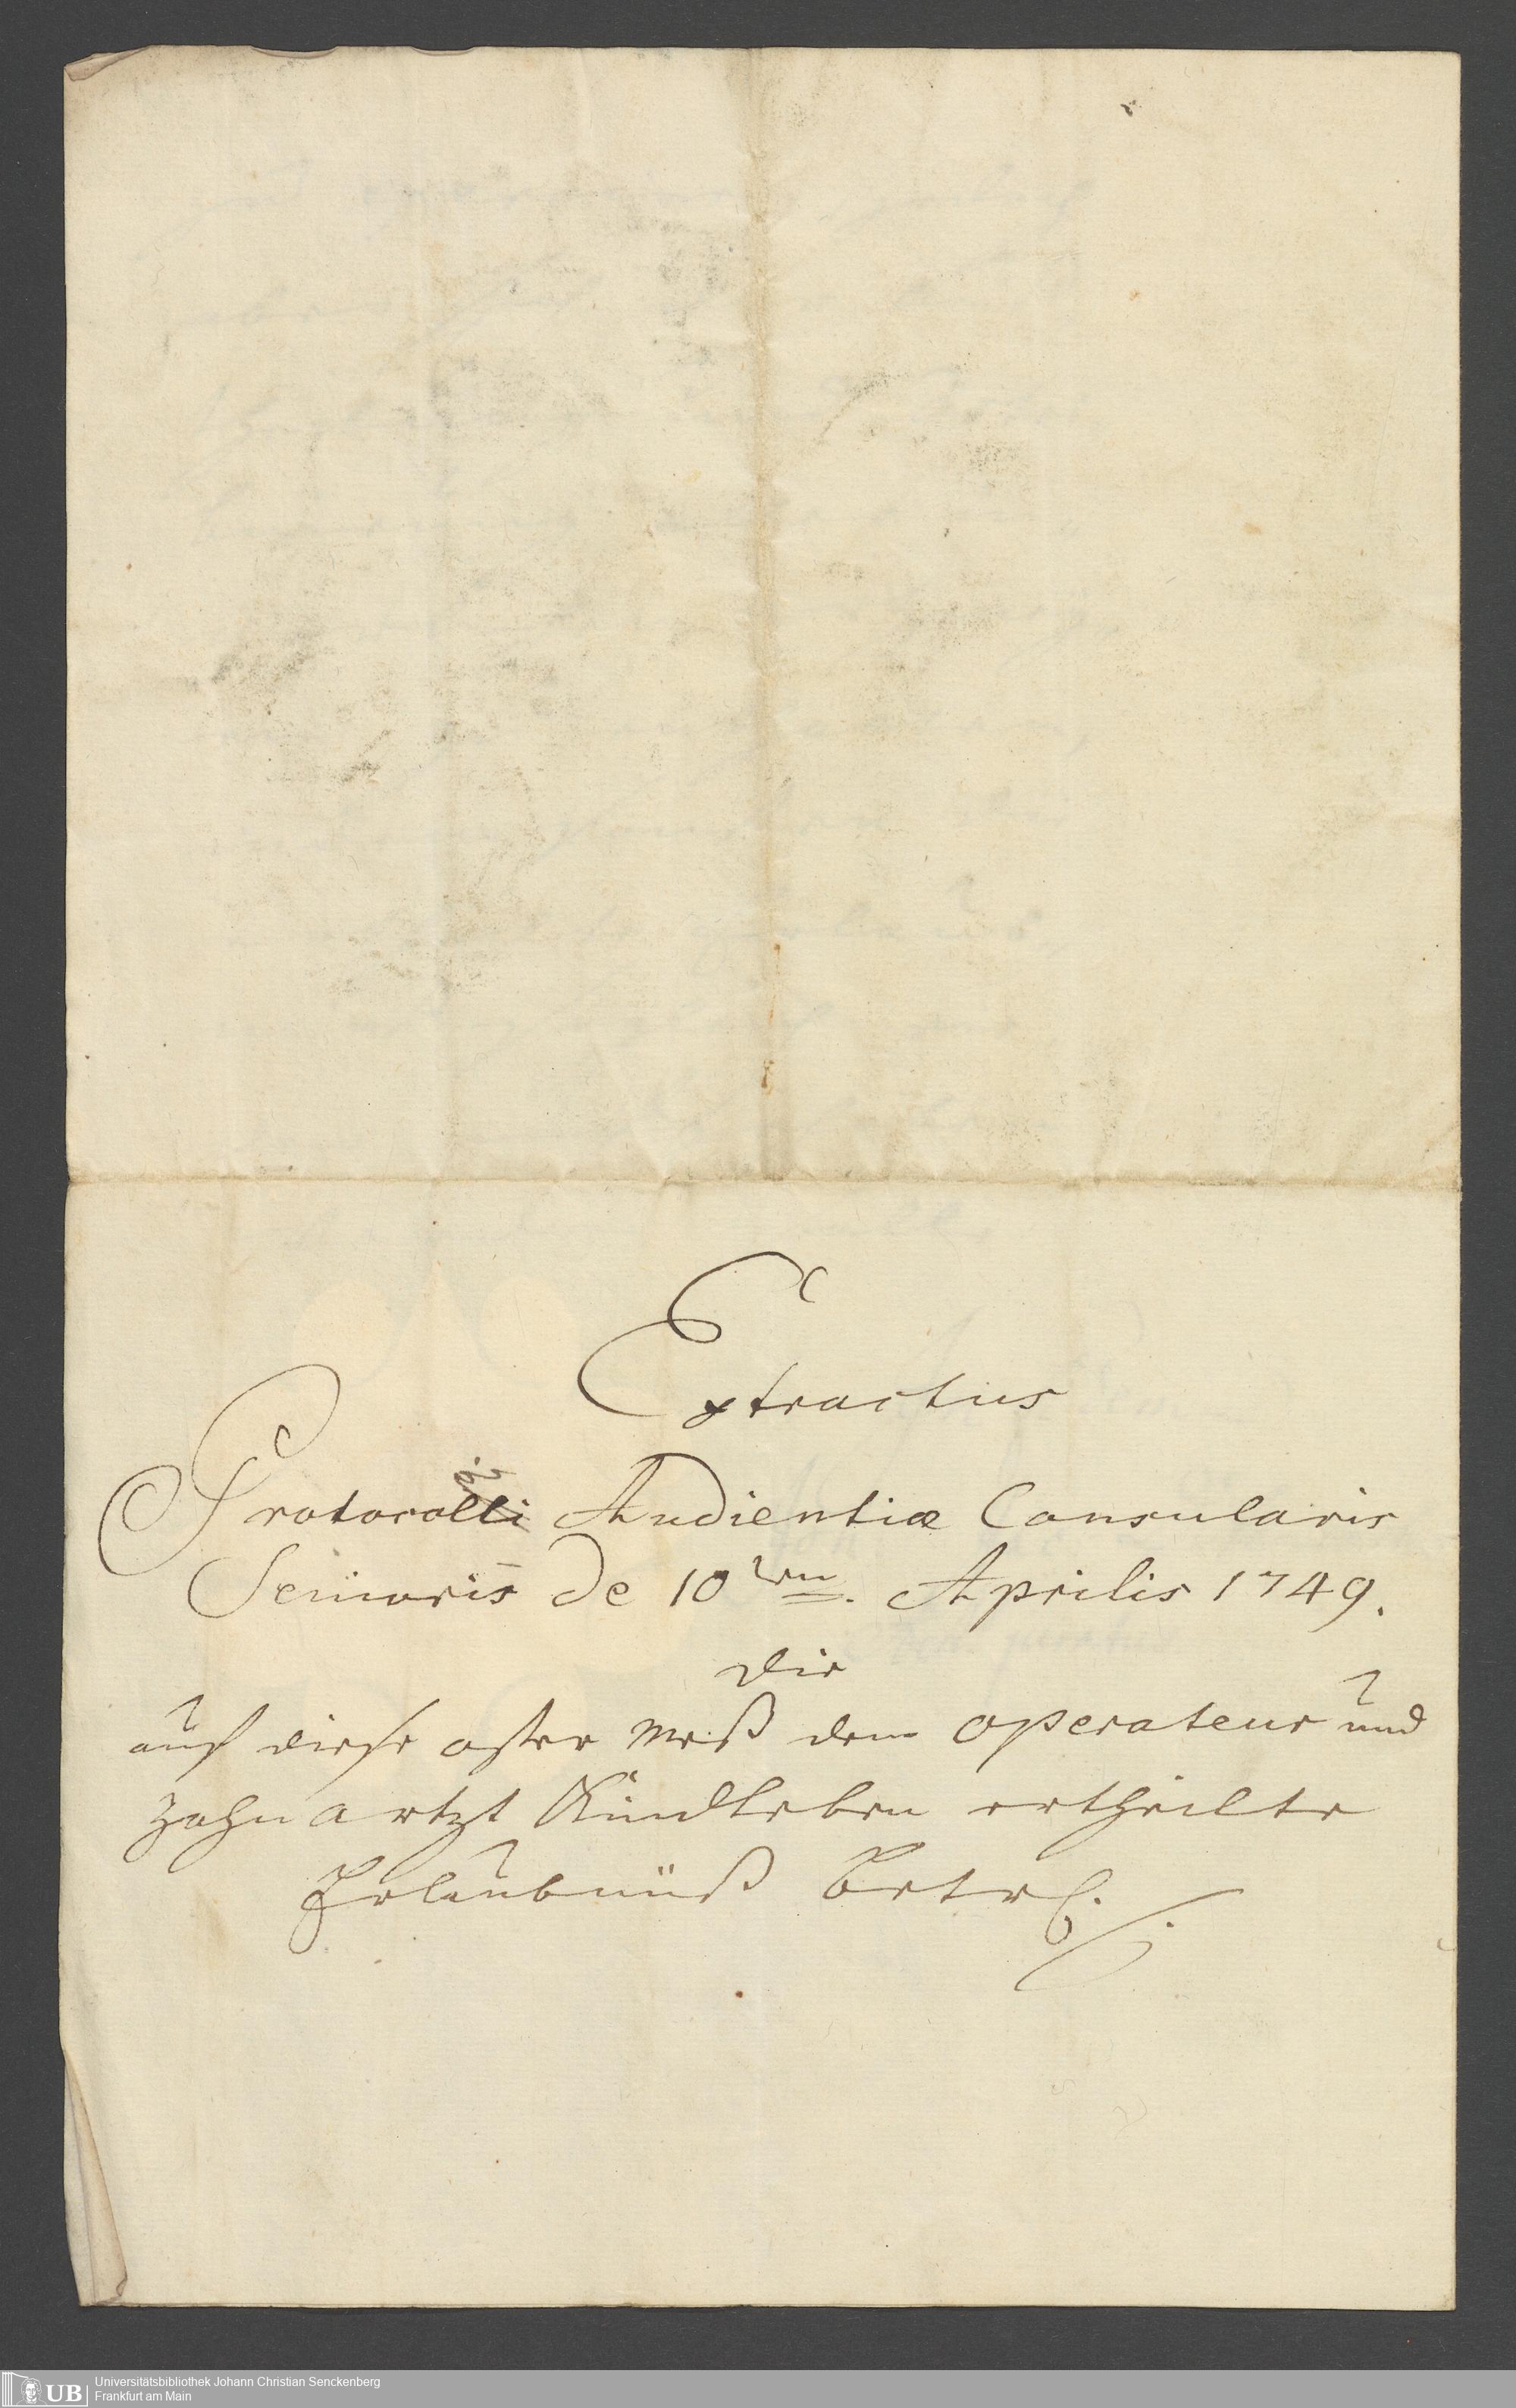 Extractus
Protocolli Audientiæ Consularis
Senioris de 10ten. Aprilis 1749.
die
auf diese oster Meß dem operateur und
Zahn artzt Kindleben ertheilte
Erlaubnüß betrl.
UB
Universitätsbibliothek Johann Christian Senckenberg
Frankfurt am Main